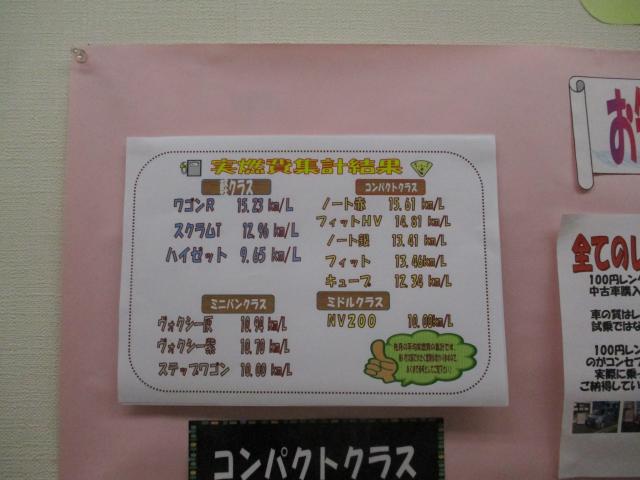 実燃費集計結果
軽クラス
ワゴンR 15.23 km/L
スクラムT 12.96 km/L
ハイゼット 9.65 km/L
コンパクトクラス
ノート赤 15.61 km/L
フィットHV 14.81 km/L
ノート銀 13.41 km/L
フィット 13.46km/L
キューブ 12.34 km/L
ミニバンクラス
ヴォクシー灰 10.94 km/L
ヴォクシー黒 10.70 km/L
ステップワゴン 10.00 km/L
ミドルクラス
NV200 10.00km/L
先月の平均実燃費の集計です。
コンパクトクラス
お
全てのレ
100円レン
中古車購入
車の質はレ
試乗ではな
100円レン
のがコンセプ
実際に乗っ
ご納得してい